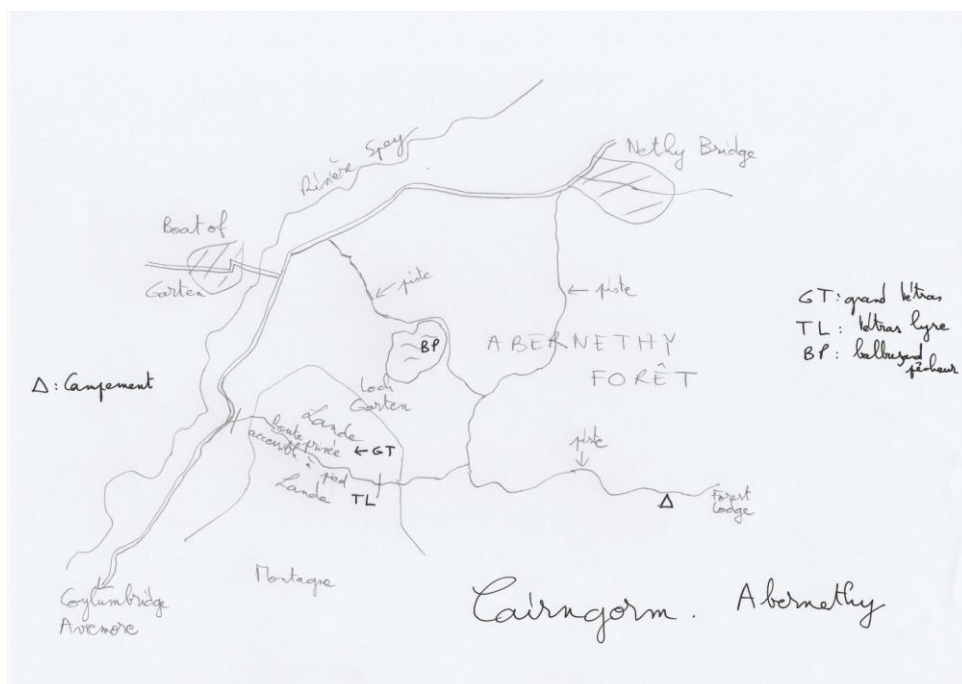 Rivière Spey
Nethy Bridge
Boat of
Garten
← piste
← piste
GT : grand tétras
TL : tétras lyre
BP : balbuzard
pêcheur
BP
ABERNETHY
FORÊT
Δ : Campement
Loch
Garten
Lande
Route privée
accessible
à pied
← GT
Lande
TL
piste
Δ
Forest
Lodge
Montagne
Coylumbridge
Aviemore
Cairngorm. Abernethy